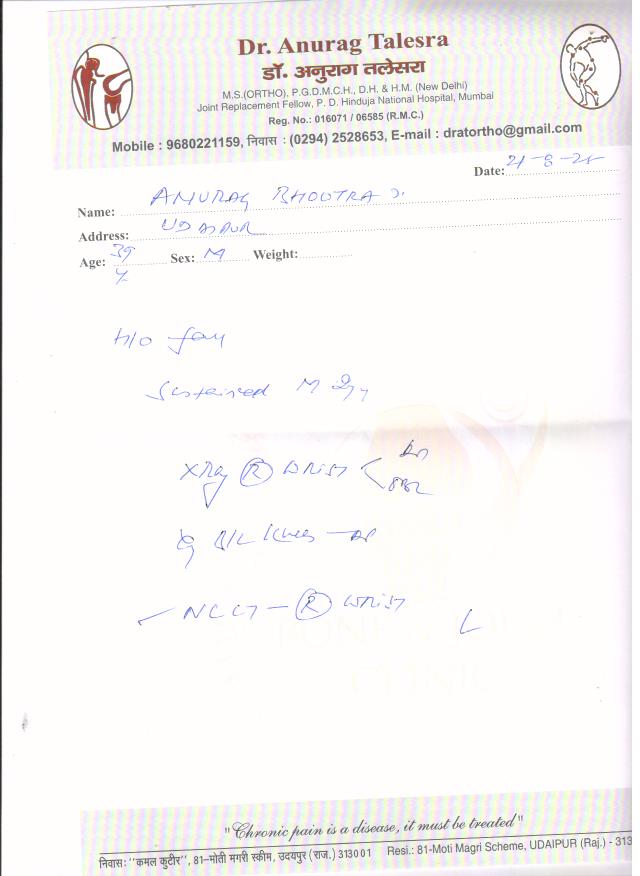 Dr. Anurag Talesra
डॉ. अनुराग तलेसरा
M.S.(ORTHO), P.G.D.M.C.H., D.H. & H.M. (New Delhi)
Joint Replacement Fellow, P. D. Hinduja National Hospital, Mumbai
Reg. No.: 016071 / 06585 (R.M.C.)
Mobile : 9680221159, निवास : (0294) 2528653, E-mail : dratortho@gmail.com
Date:
Name: ANURAG BHOOTRA
Address: UDAIPUR
Age: 39 Sex: M Weight:
H/O
Sustained
XRay (R) WRIST
B/L Knees - AP
NCCT - (R) WRIST
"Chronic pain is a disease, it must be treated"
निवास: "कमल कुटीर", 81-मोती मगरी स्कीम, उदयपुर (राज.) 313001 Resi.: 81-Moti Magri Scheme, UDAIPUR (Raj.) - 313